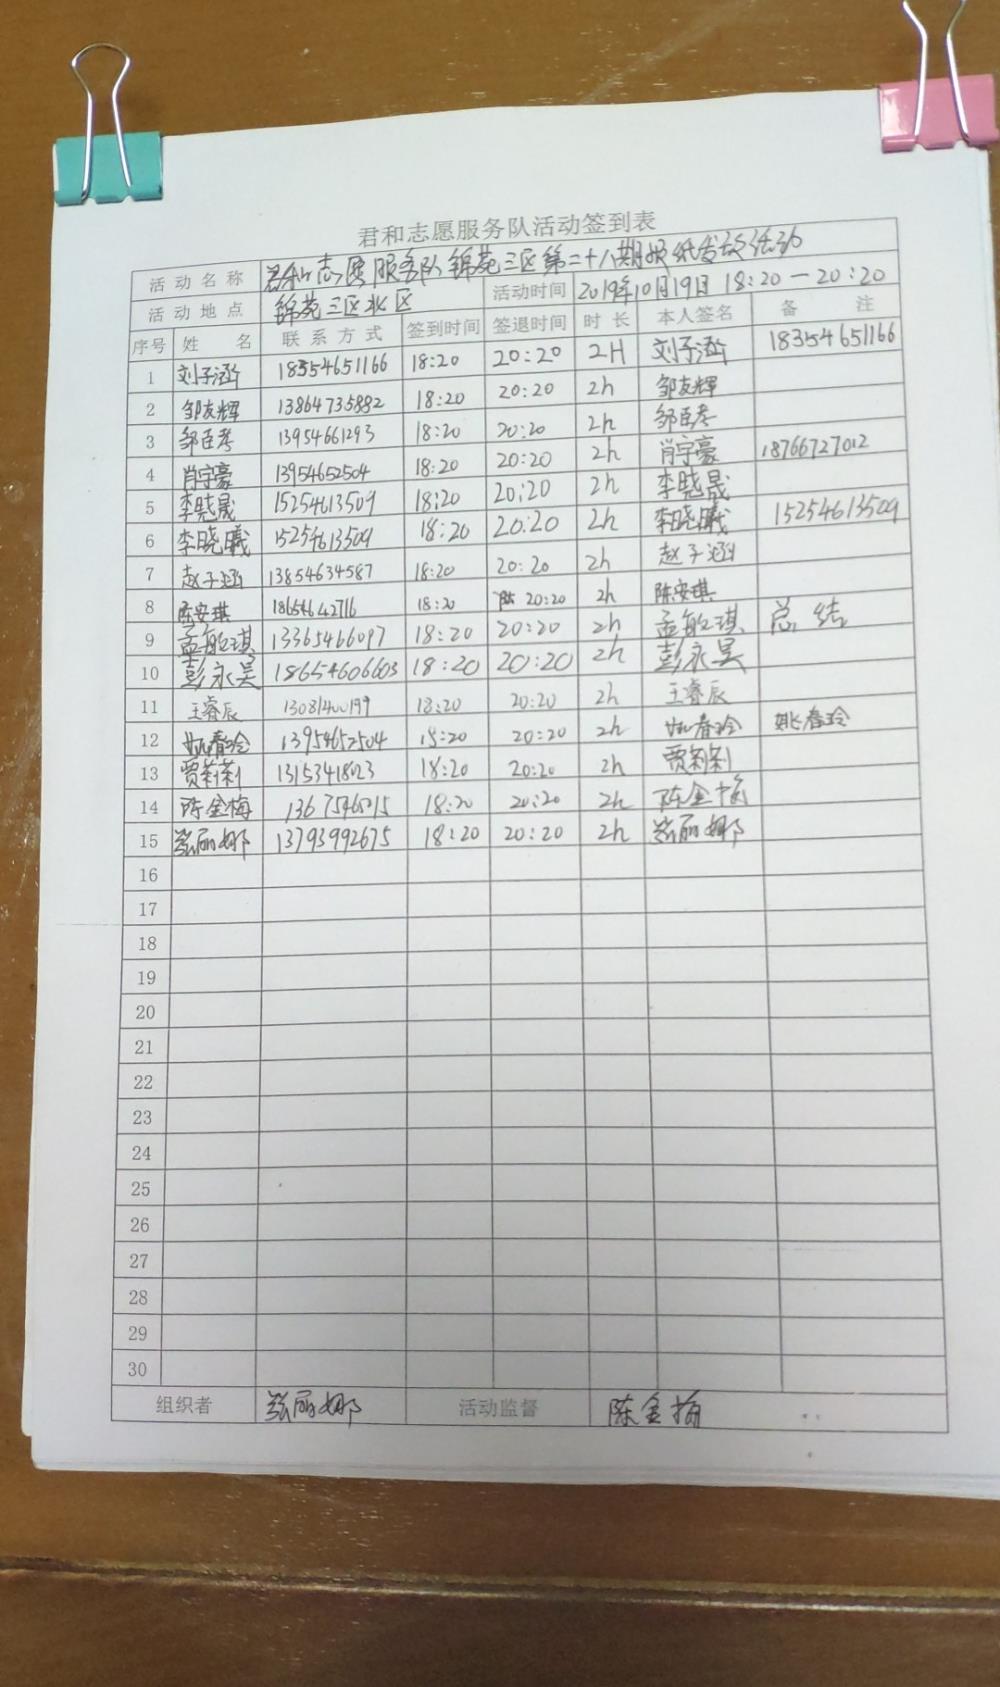 君和志愿服务队活动签到表
活动名称 君和志愿服务队锦苑三区第二十八期报纸发放活动
活动地点 锦苑三区北区 活动时间 2019年10月19日 18:20—20:20
序号 姓名 联系方式 签到时间 签退时间 时长 本人签名 备注
1 刘子涵 18354651166 18:20 20:20 2H 刘子涵 18354651166
2 邹友辉 13864735882 18:20 20:20 2h 邹友辉
3 邹臣孝 13954661293 18:20 20:20 2h 邹臣孝
4 肖宇豪 13954652504 18:20 20:20 2h 肖宇豪 18766727012
5 李晓晟 15254613509 18:20 20:20 2h 李晓晟
6 李晓曦 15254613509 18:20 20:20 2h 李晓曦 15254613509
7 赵子涵 13854634587 18:20 20:20 2h 赵子涵
8 陈安琪 18654642716 18:20 20:20 2h 陈安琪
9 孟敏琪 13365466097 18:20 20:20 2h 孟敏琪 总结
10 彭永昊 18654606603 18:20 20:20 2h 彭永昊
11 王睿辰 13081400199 18:20 20:20 2h 王睿辰
12 姚春玲 13954652504 18:20 20:20 2h 姚春玲 姚春玲
13 贾莉莉 18:20 20:20 2h 贾莉莉
14 陈金梅 18:20 20:20 2h 陈金梅
15 张丽娜 13793992675 18:20 20:20 2h 张丽娜
16
17
18
19
20
21
22
23
24
25
26
27
28
29
30
组织者 张丽娜 活动监督 陈金梅